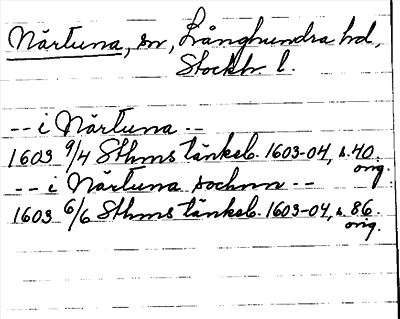 Närtuna, sn, Långhundra hd,
Stockh l.
-- i Närtuna --
1603 9/4 Sthms tänkeb. 1603-04, s. 40.
orig.
-- i Närtuna sochnn --
1603 6/6 Sthms tänkeb. 1603-04, s. 86.
orig.